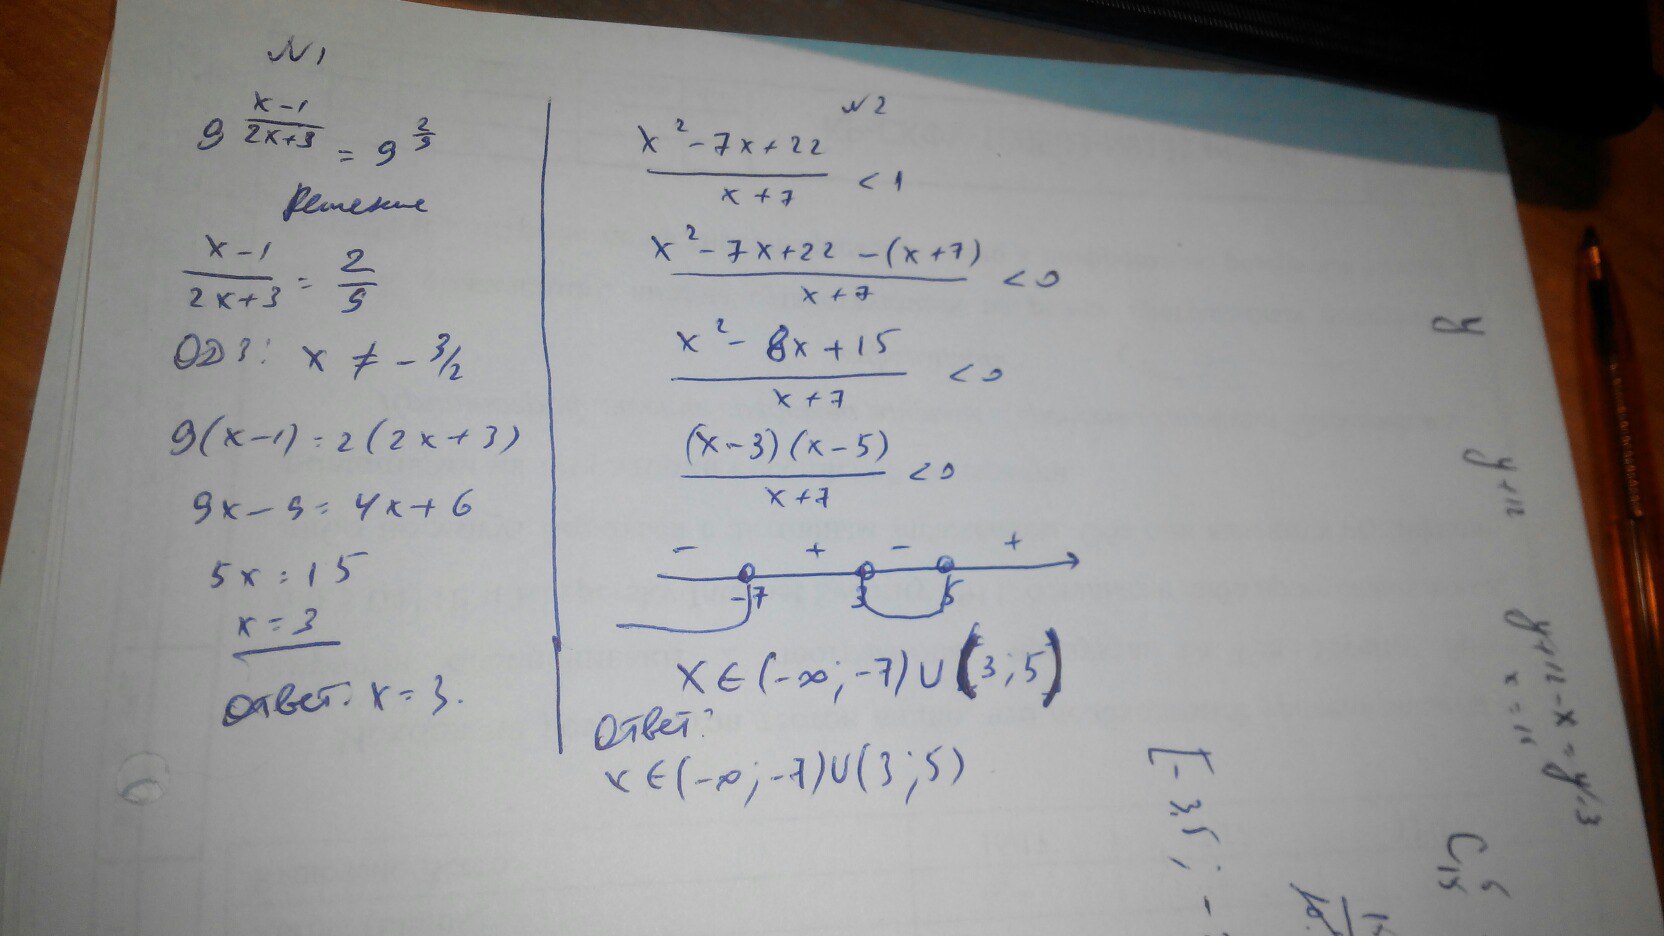 N1
9^((x-1)/(2x+3)) = 9^(2/9)
Решение
(x-1)/(2x+3) = 2/9
ОДЗ: x ≠ -3/2
9(x-1) = 2(2x+3)
9x-9 = 4x+6
5x = 15
x = 3
Ответ: x = 3.
N2
(x²-7x+22)/(x+7) < 1
(x²-7x+22-(x+7))/(x+7) < 0
(x²-8x+15)/(x+7) < 0
((x-3)(x-5))/(x+7) < 0
- + - +
-7 3 5
x ∈ (-∞; -7) ∪ (3; 5)
Ответ:
x ∈ (-∞; -7) ∪ (3; 5)
y
y+12
y+12-x = y-3
x = 15
[-3,5; -